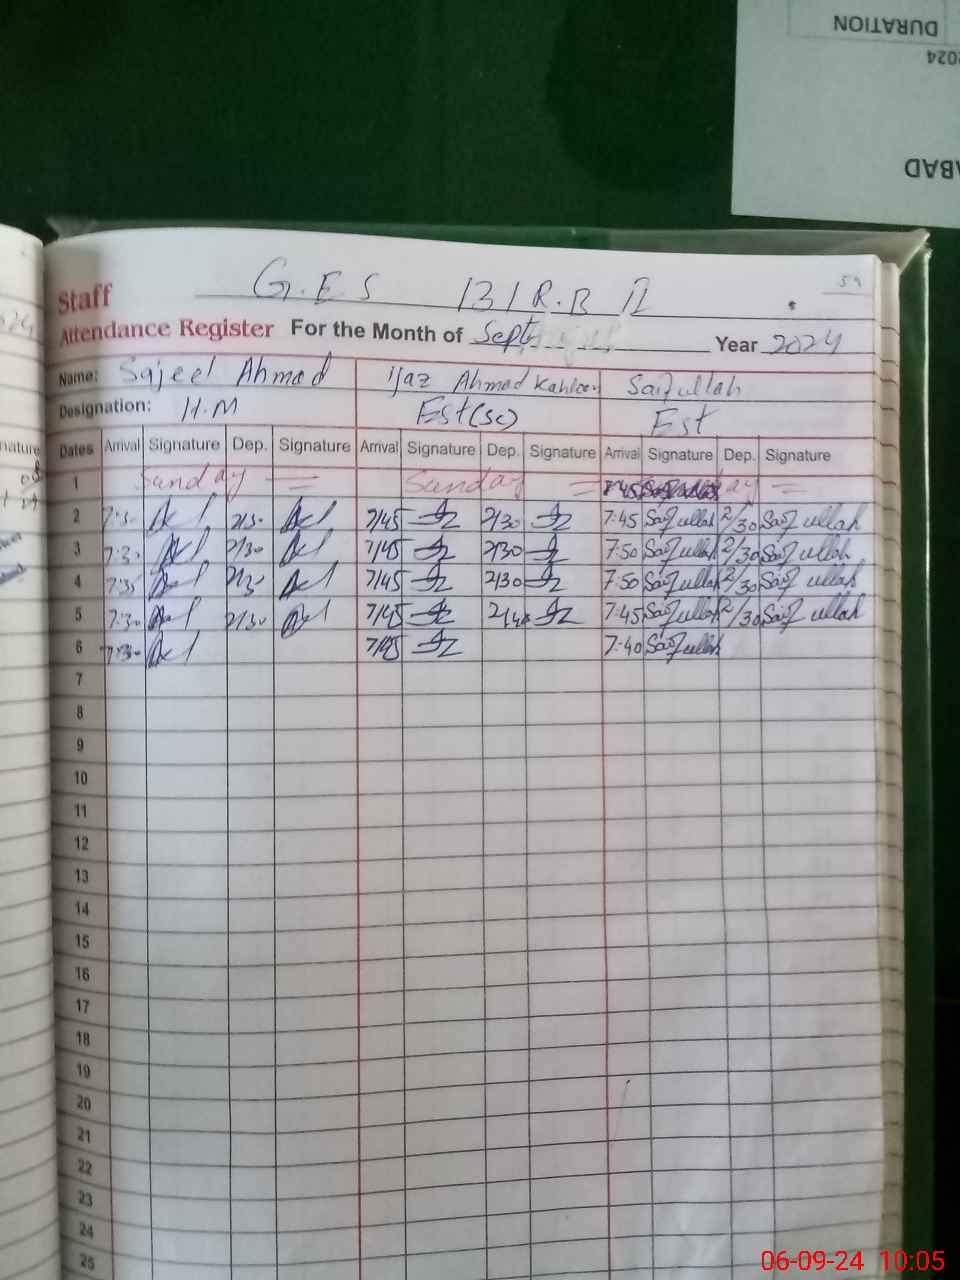 DURATION
2024
ABAD
59
G.E.S 131 R.B
Staff
Attendance Register For the Month of Sept Year 2024
Name: Sajeel Ahmad Ijaz Ahmad Kahloon Saifullah
Designation: H.M Est(sc) Est
Dates Arrival Signature Dep. Signature Arrival Signature Dep. Signature Arrival Signature Dep. Signature
1 Sunday = Sunday =
2 2/30 7/45 2/30 7:45 Saifullah 2/30 Saifullah
3 7:30 2/30 7/45 2/30 7:50 Saifullah 2/30 Saifullah
4 7:35 7/45 2/30 7:50 Saifullah 2/30 Saifullah
5 7:30 2/30 7/45 7:45 Saifullah 2/30 Saifullah
6 7:30 7/45 7:40 Saifullah
7
8
9
10
11
12
13
14
15
16
17
18
19
20
21
22
23
24
25
06-09-24 10:05